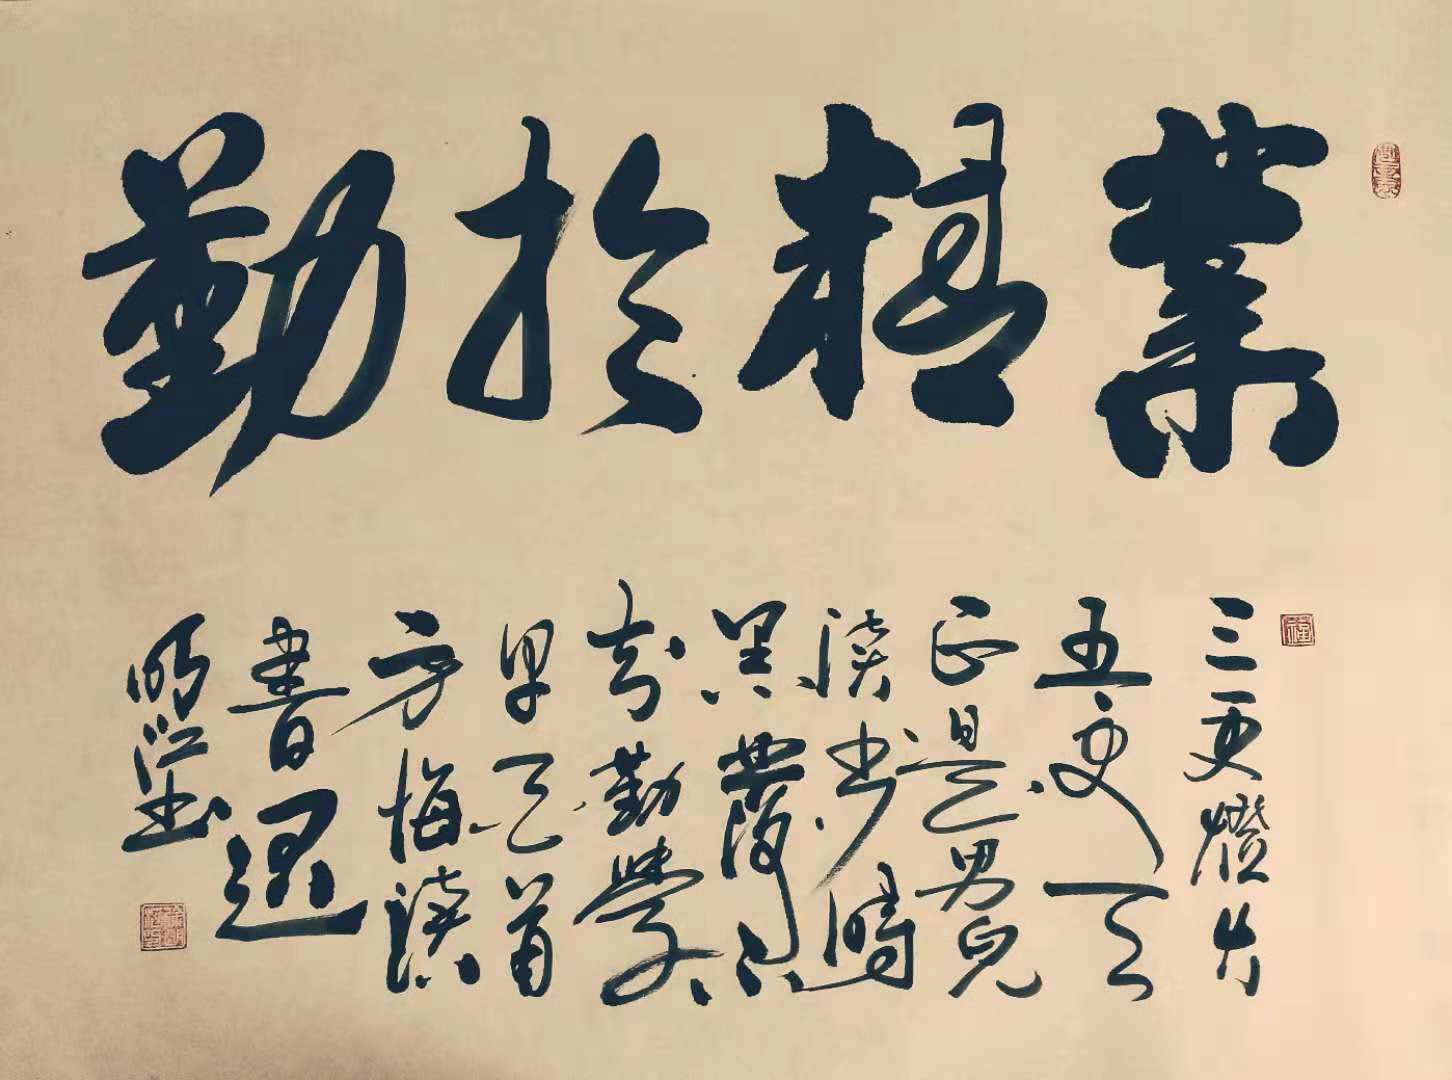 業精於勤
三更燈火
五更天
正是男兒
讀書時
黑髮不
知勤學
早首
方悔讀
書遲
明江書